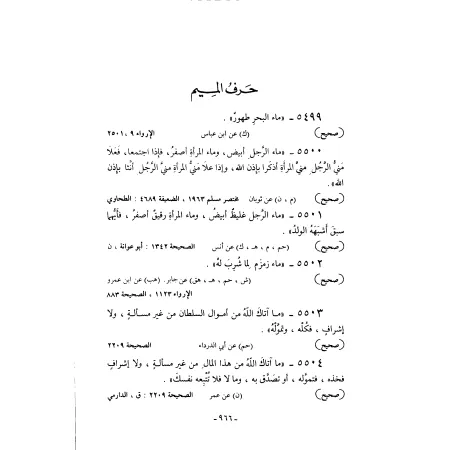 حَرفُ المِيـم
٥٤٩٩ ـ «ماء البحرِ طهورٌ» .
(صحيح) (ك) عن ابن عباس الإرواء ٩ ، ٢٥٠١
٥٥٠٠ ـ «ماء الرَّجلِ أبيضُ، وماء المرأةِ أصفرُ، فإذا اجتمعا، فَعَلَا
مَنيُّ الرَّجُلِ مَنيَّ المرأةِ أذكَرا بإذنِ الله، وإذا علا مَنيُّ المرأةِ مَنيَّ الرَّجُلِ أنثا بإذنِ
الله» .
(صحيح) (م ، ن) عن ثوبان مختصر مسلم ١٩٦٣ ، الضعيفة ٤٦٨٩ : الطحاوي
٥٥٠١ ـ «ماء الرَّجلِ غليظٌ أبيضُ ، وماء المرأةِ رقيقٌ أصفرُ ، فأيُّهما
سبقَ أَشبَهَهُ الولدُ» .
(صحيح) (حم ، م ، هـ ، ك) عن أنس الصحيحة ١٣٤٢ : أبو عوانة ، ن
٥٥٠٢ ـ «ماء زمزمَ لِما شُرِبَ لهُ» .
(صحيح) (ش ، حم ، هـ ، هق) عن جابر. (هب) عن ابن عمرو
الإرواء ١١٢٣ ، الصحيحة ٨٨٣
٥٥٠٣ ـ «مـا آتاكَ اللّهُ من أمـوالِ السلطانِ من غيرِ مسـألـةٍ ، ولا
إشرافٍ ، فكُلْه ، وتموَّلْهُ» .
(صحيح) (حم) عن أبي الدرداء الصحيحة ٢٢٠٩
٥٥٠٤ ـ «ما آتاكَ اللّهُ من هذا المالِ من غيرِ مسألةٍ ، ولا إشرافٍ
فخذه ، فتموَّله ، أو تصَدَّق به ، وما لا فلا تُتْبِعه نفسكَ» .
(صحيح) (ن) عن عمر الصحيحة ٢٢٠٩ : ق ، الدارمي
-٩٦٦-